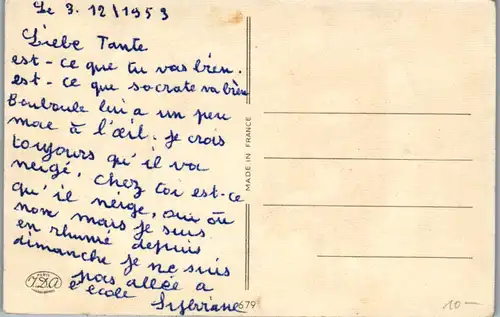 Le 3. 12/1953
Liebe Tante
est-ce que tu vas bien.
est-ce que socrate va bien
Bouboule lui a un peu
mae à l'œil. Je crois
toujours qu'il va
neigé, chez toi est-ce
qu'il neige, oui ou
non mais je suis
en rhumé depuis
dimanche je ne suis
pas allée a
l'école Sylviane
MADE IN FRANCE
PARIS
679
10-